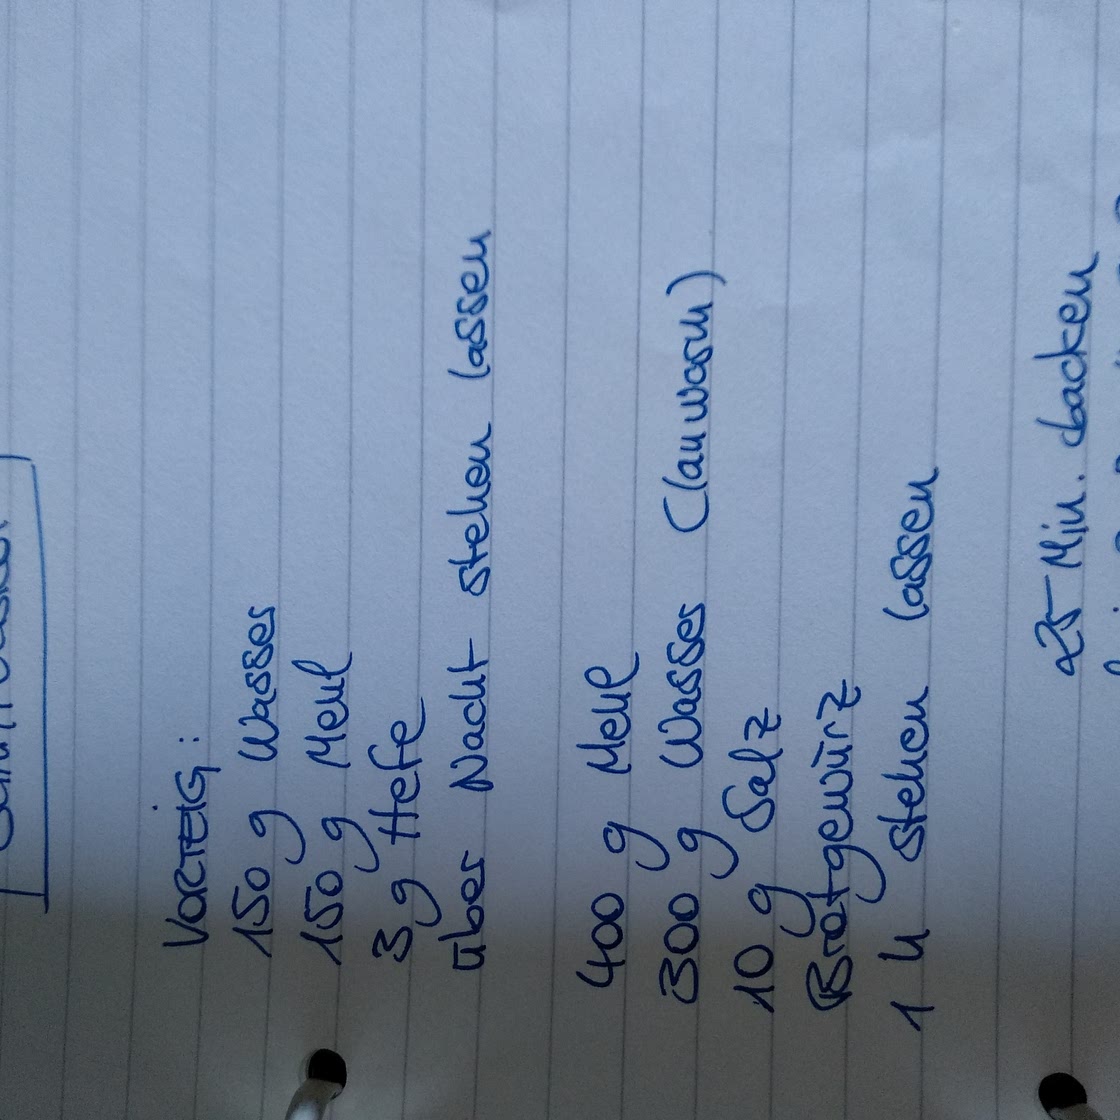 VORTEIG:
150 g Wasser
150 g Mehl
3 g Hefe
über Nacht stehen lassen
400 g Mehl
300 g Wasser (lauwarm)
10 g Salz
Brotgewürz
1 h stehen lassen
25 Min. backen